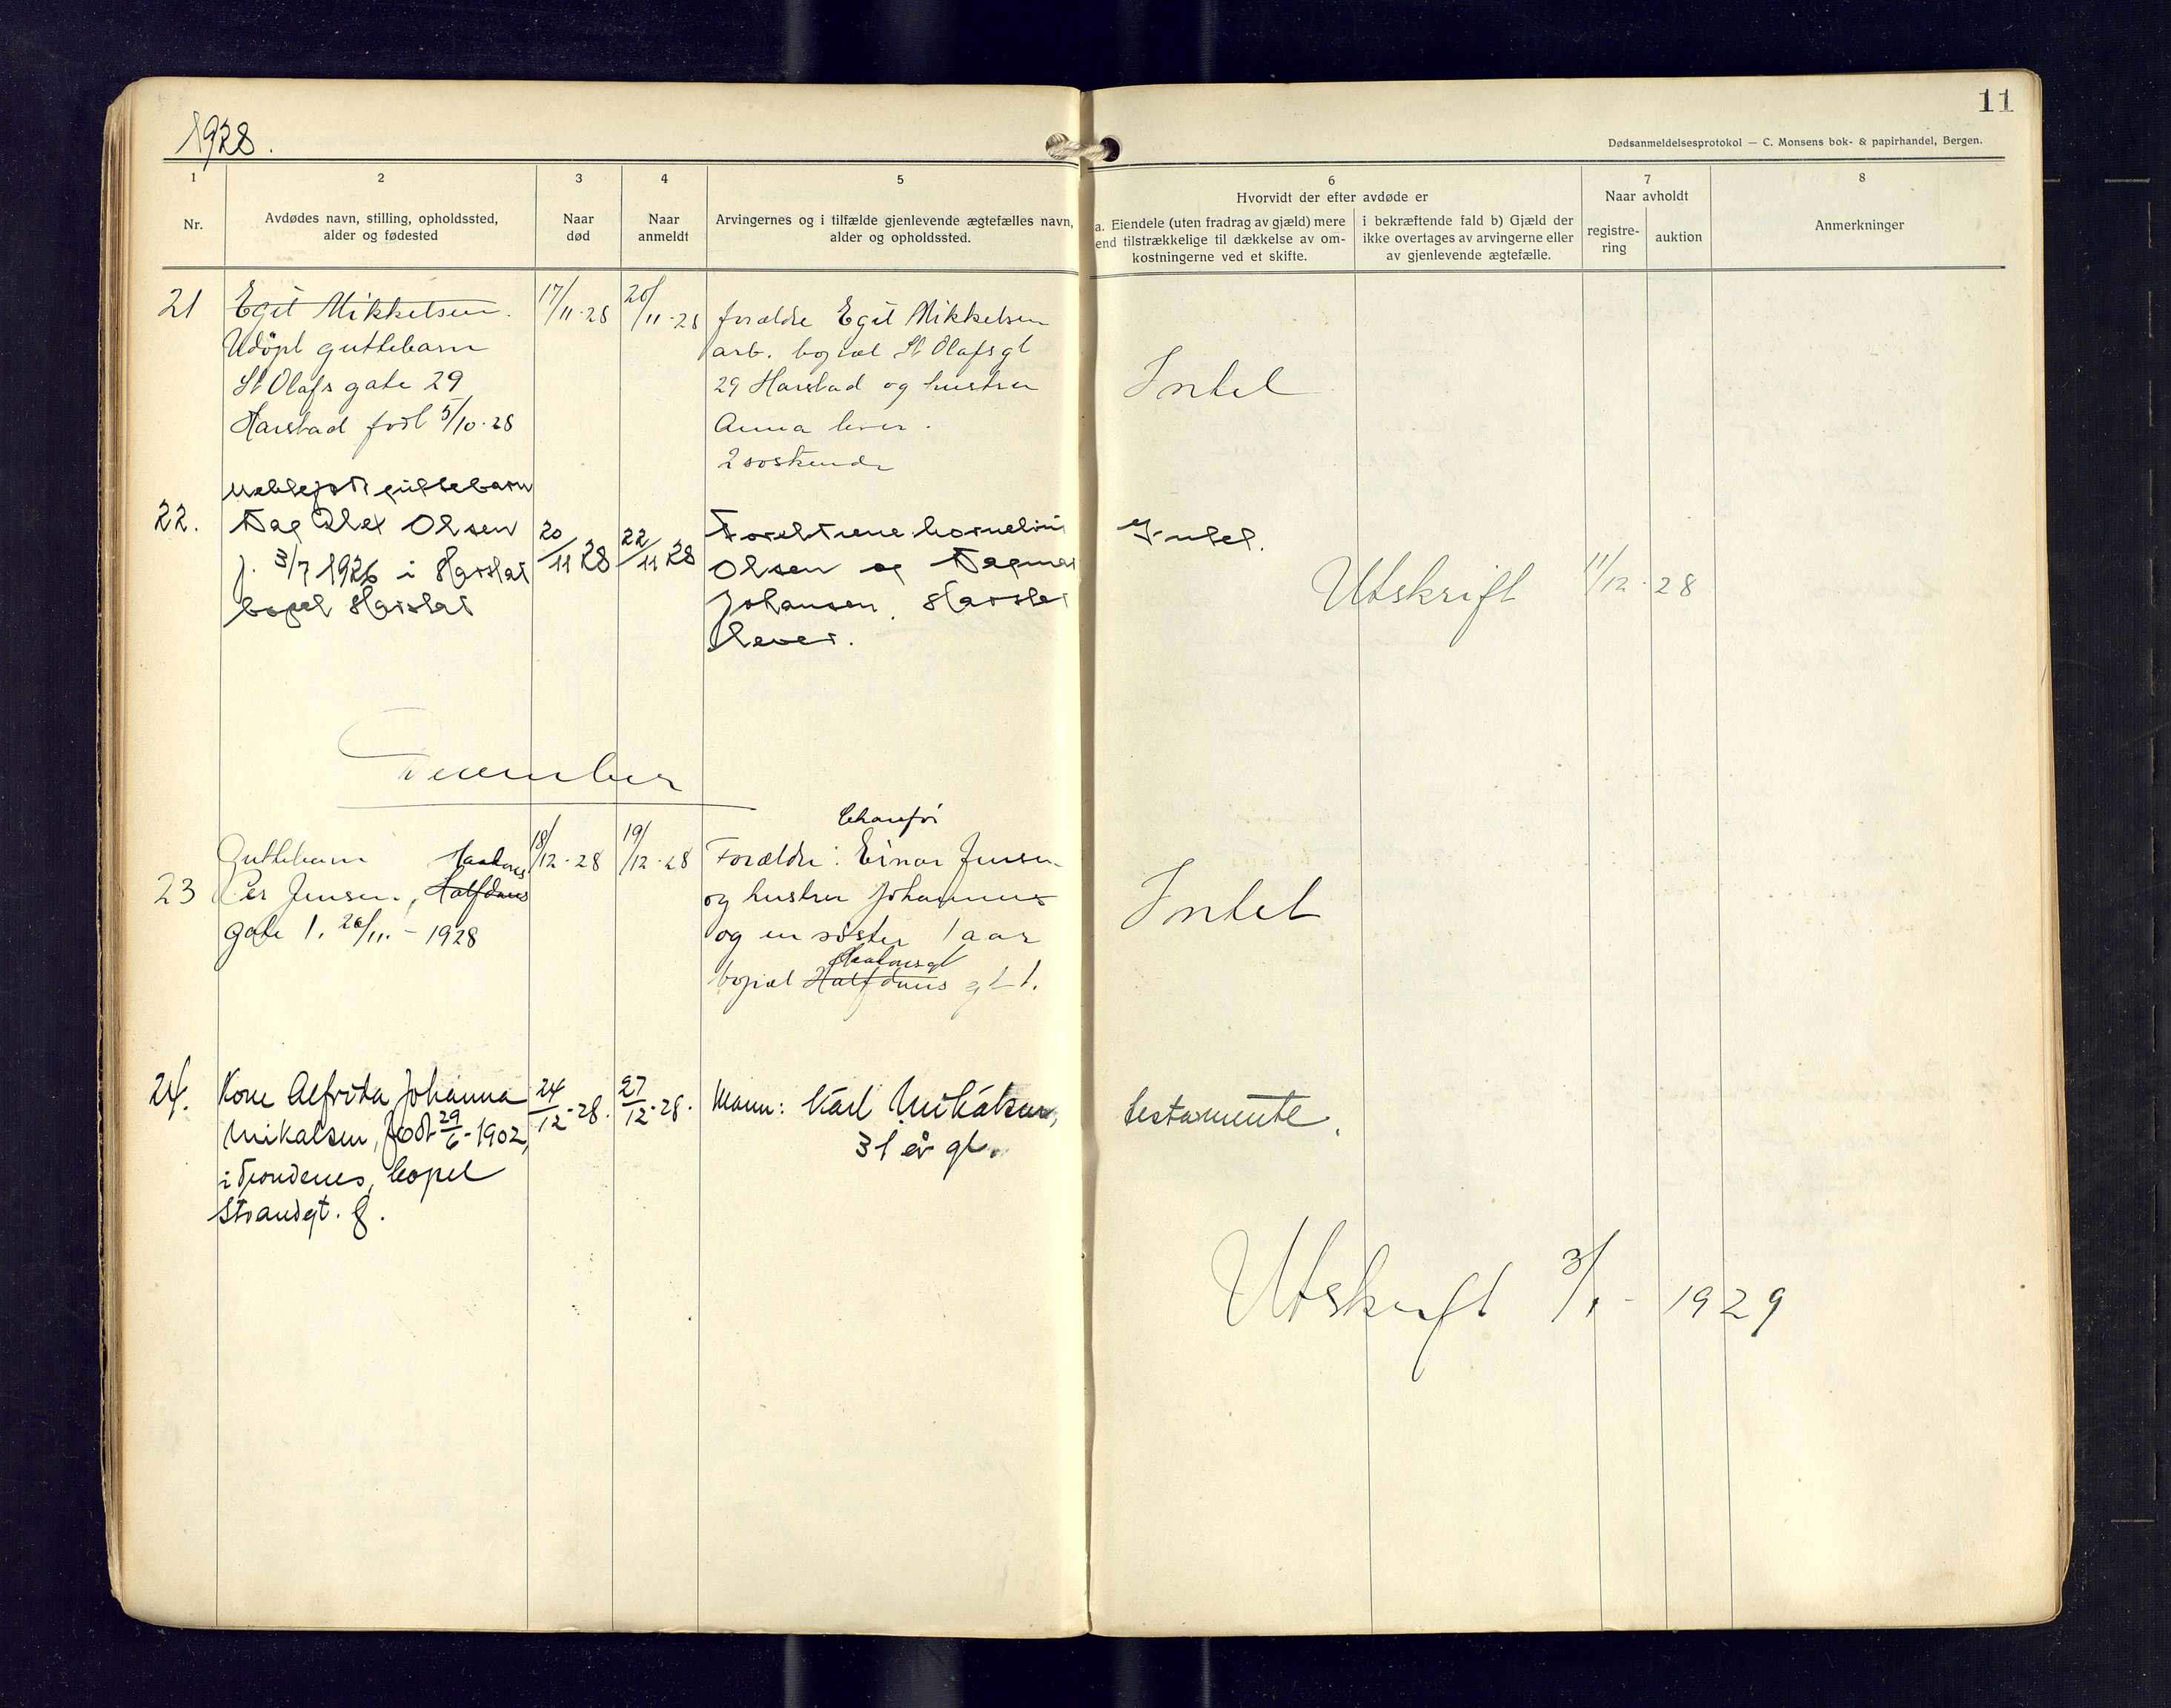 1928.
11
Dødsanmeldelsesprotokol — C. Monsens bok- & papirhandel, Bergen.
1
Nr.
2
Avdødes navn, stilling, opholdssted,
alder og fødested
3
Naar
død
4
Naar
anmeldt
5
Arvingernes og i tilfælde gjenlevende ægtefælles navn,
alder og opholdssted.
6
Hvorvidt der efter avdøde er
a. Eiendele (uten fradrag av gjæld) mere
end tilstrækkelige til dækkelse av om-
kostningerne ved et skifte.
i bekræftende fald b) Gjæld der
ikke overtages av arvingerne eller
av gjenlevende ægtefælle.
7
Naar avholdt
registre-
ring
auktion
8
Anmerkninger
21
Egil Mikkelsen.
Udöpt guttebarn
St Olafs gate 29
Harstad født 5/10-28
17/11-28
20/11-28
forældre Egil Mikkelsen
arb. bopæl St Olafsgt
29 Harstad og hustru
Anna lever.
2 søskende
Intet
22.
guttebarn
Dag Olsen
f. 3/7 1926 i Harstad
bopel Harstad
20/11 28
22/11 28
Foreldrene
Olsen og Dagmar
Johansen. Harstad
lever.
Intet.
Utskrift 11/12-28
December
23
Guttebarn Haakons
Per Jensen, Halfdans
gate 1. 26/11.-1928
18/12-28
19/12-28
Chaufør
Forældre: Einar Jensen
og hustru
og en søster 1 aar
Haakonsgt
bopæl Halfdans gt 1.
Intet
24.
Kone Alfrida Johanna
Mikalsen, født 29/6-1902,
i Trondenes, bopel
Strandgt. 8.
24/12-28.
27/12-28.
Mann: Karl Mikalsen,
31 år gl.
testamente.
Utskrift 3/1-1929